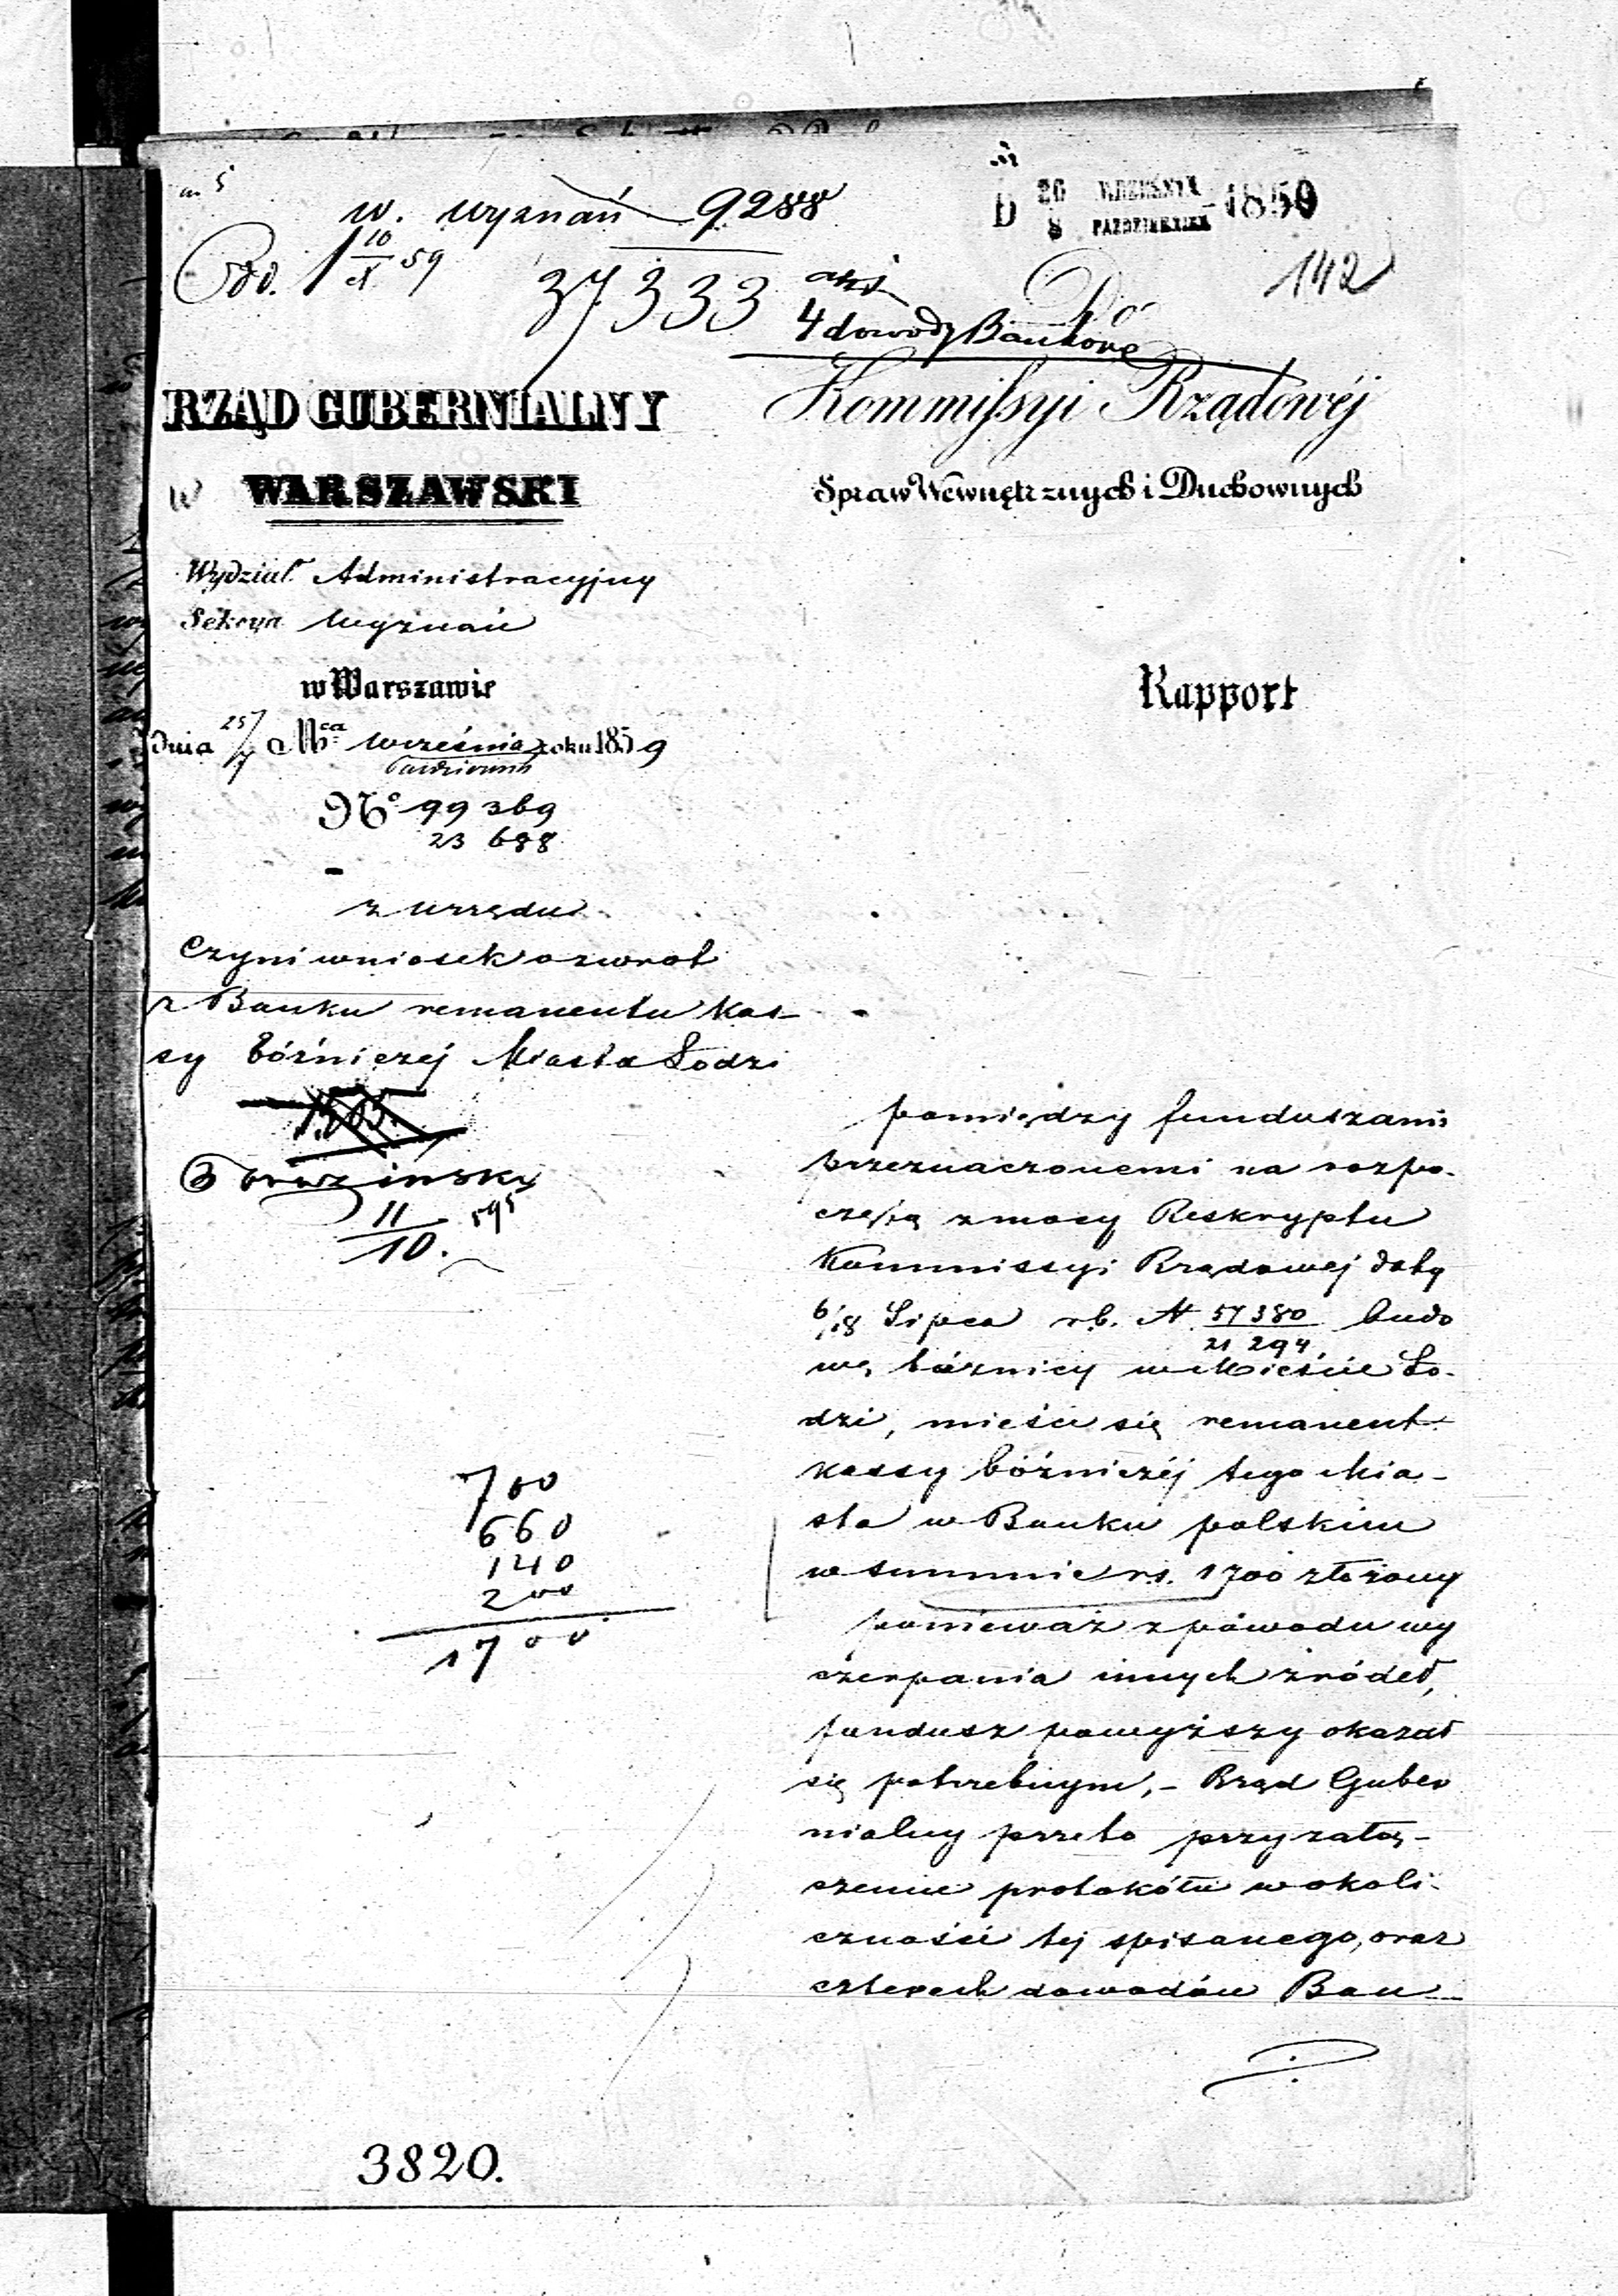 w. wyznań 9288
D 26 WRZEŚNIA 1859
8 PAŹDZIERNIKA
142
Pod. 10/X 59
37333
4 dowody Bankowe
Do
RZĄD GUBERNIALNY
WARSZAWSKI
Wydział Administracyjny
Sekcya Wyznań
w Warszawie
dnia 25/7 Mca Września roku 1859
Października
No 99 369
23 688
z urzędu
Czyni wniosek o zwrot
z Banku remanentu Kas-
sy bóżniczej Miasta Łodzi
11/10. 59
700
660
140
200
1700
3820.
Kommissyi Rządowéj
Spraw Wewnętrznych i Duchownych
Rapport
pomiędzy funduszami
przeznaczonemi na rozpo-
czętą z mocy Reskryptu
Kommissyi Rządowej daty
6/18 Lipca rb. N 57380/21294 budo
wę bóżnicy w Mieście Ło-
dzi, mieści się remanent
kassy bóżniczéj tego Mia-
sta w Banku polskim
w summie rs. 1700 złożony
ponieważ z powodu wy
czerpania innych źródeł,
fundusz powyższy okazał
się potrzebnym, - Rząd Guber
nialny przeto przy załą-
czeniu protokółu w okoli-
czności tej spisanego, oraz
czterech dowodów Ban-